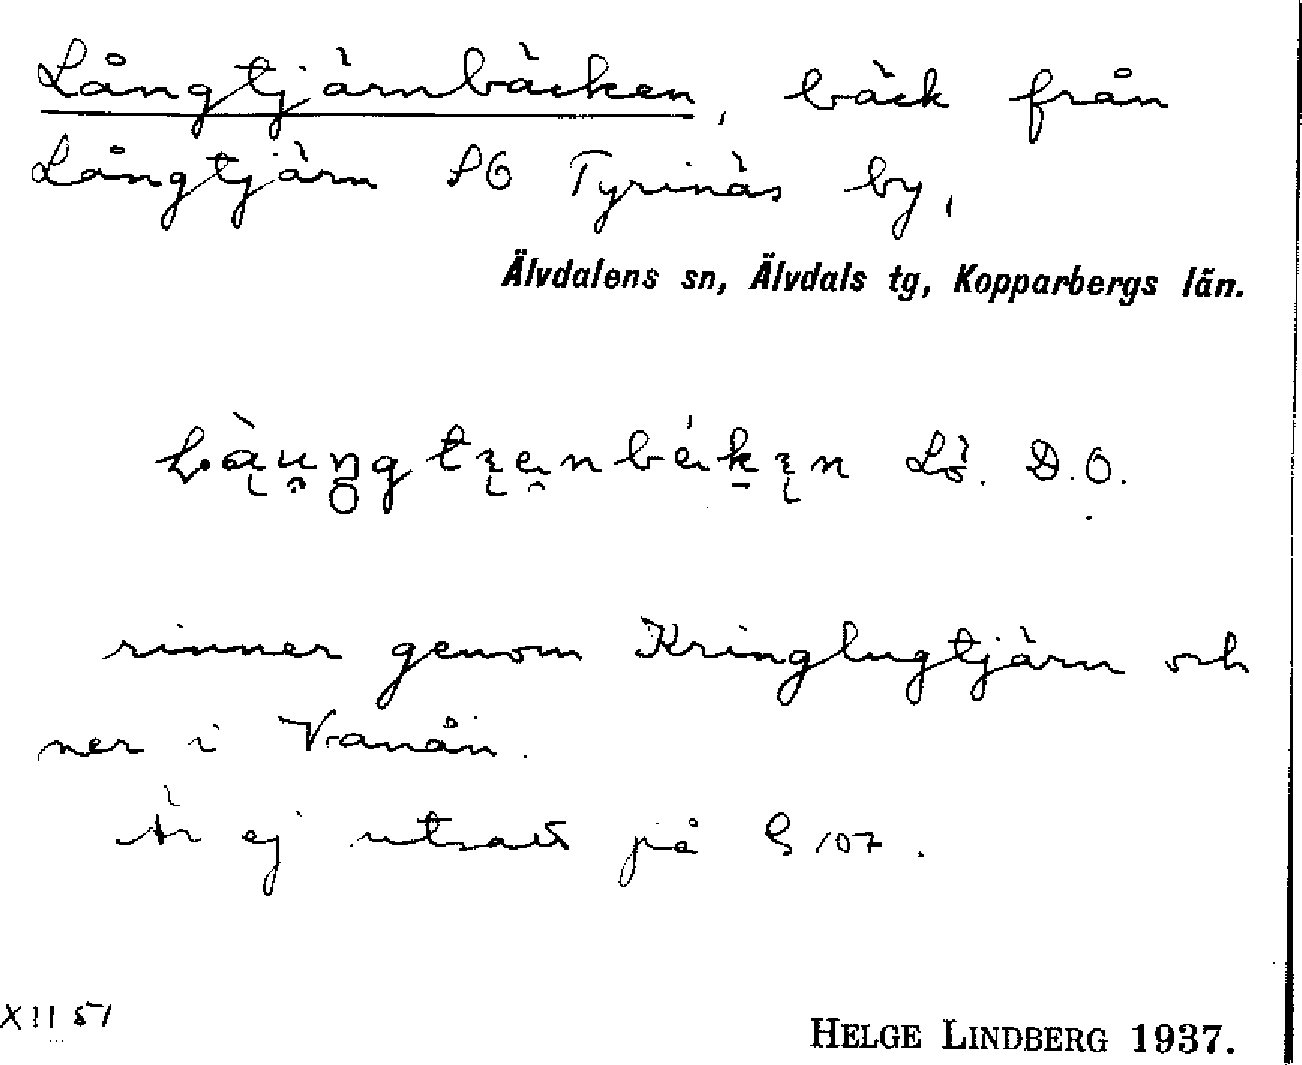 Långtjärnbäcken, bäck från
Långtjärn SO Tyrinäs by,
Älvdalens sn, Älvdals tg, Kopparbergs län.
Lö. D.O.
rinner genom Kringlugtjärn och
ner i Vanån.
Är ej utsatt på G 107.
XII 51
HELGE LINDBERG 1937.